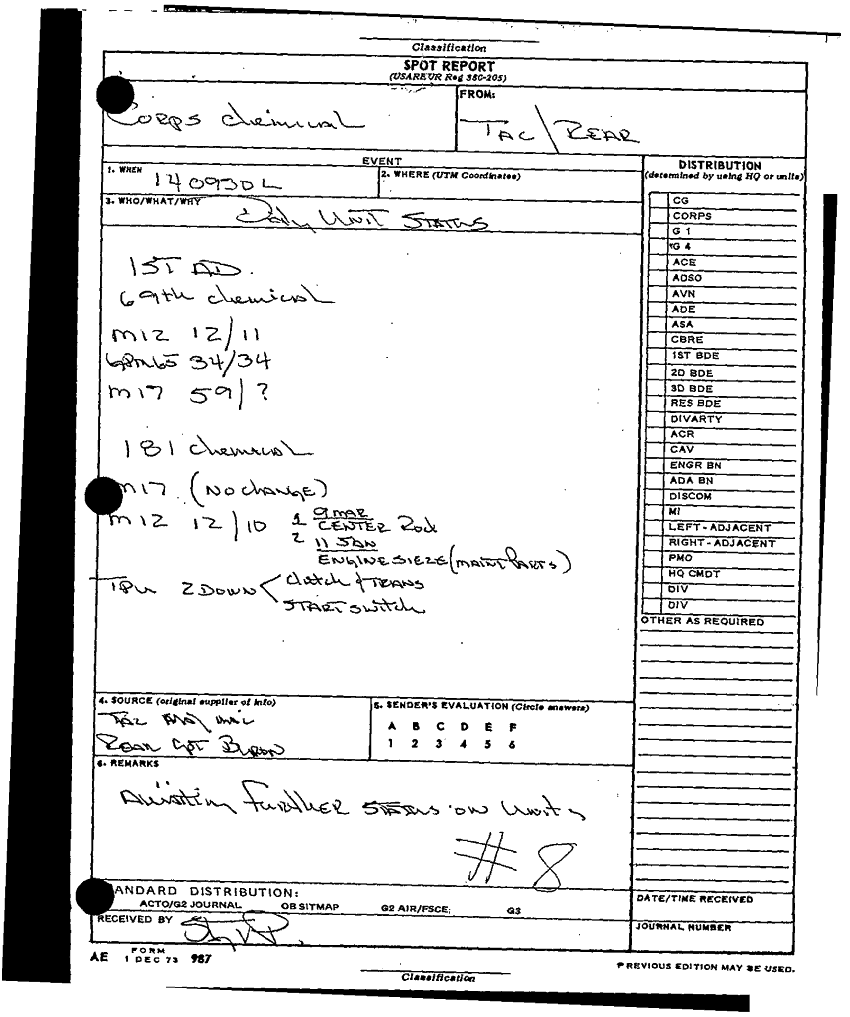 Classification
SPOT REPORT
(USAREUR Reg 380-205)
Corps chemical
FROM:
TAC/REAR
EVENT
1. WHEN
140930L
2. WHERE (UTM Coordinates)
3. WHO/WHAT/WHY
Daily Unit Status
1ST AD.
69th chemical
M12 12/11
34/34
M17 59/?
181 chemical
M17 (NO CHANGE)
M12 12/10 1 9 MAR
CENTER Rod
2 11 JAN
ENGINE SIEZE (MAINT PARTS)
TPU 2 DOWN clutch & TRANS
START switch
DISTRIBUTION
(determined by using HQ or units)
CG
CORPS
G 1
G 4
ACE
ADSO
AVN
ADE
ASA
CBRE
1ST BDE
2D BDE
3D BDE
RES BDE
DIVARTY
ACR
CAV
ENGR BN
ADA BN
DISCOM
MI
LEFT-ADJACENT
RIGHT-ADJACENT
PMO
HQ CMDT
DIV
DIV
OTHER AS REQUIRED
4. SOURCE (original supplier of info)
TAC MAJ
REAR CPT
5. SENDER'S EVALUATION (Circle answers)
A B C D E F
1 2 3 4 5 6
6. REMARKS
Awaiting further status on units
# 8
STANDARD DISTRIBUTION:
ACTO/G2 JOURNAL OB SITMAP G2 AIR/FSCE; G3
RECEIVED BY
DATE/TIME RECEIVED
JOURNAL NUMBER
AE FORM 1 DEC 73 987
PREVIOUS EDITION MAY BE USED.
Classification